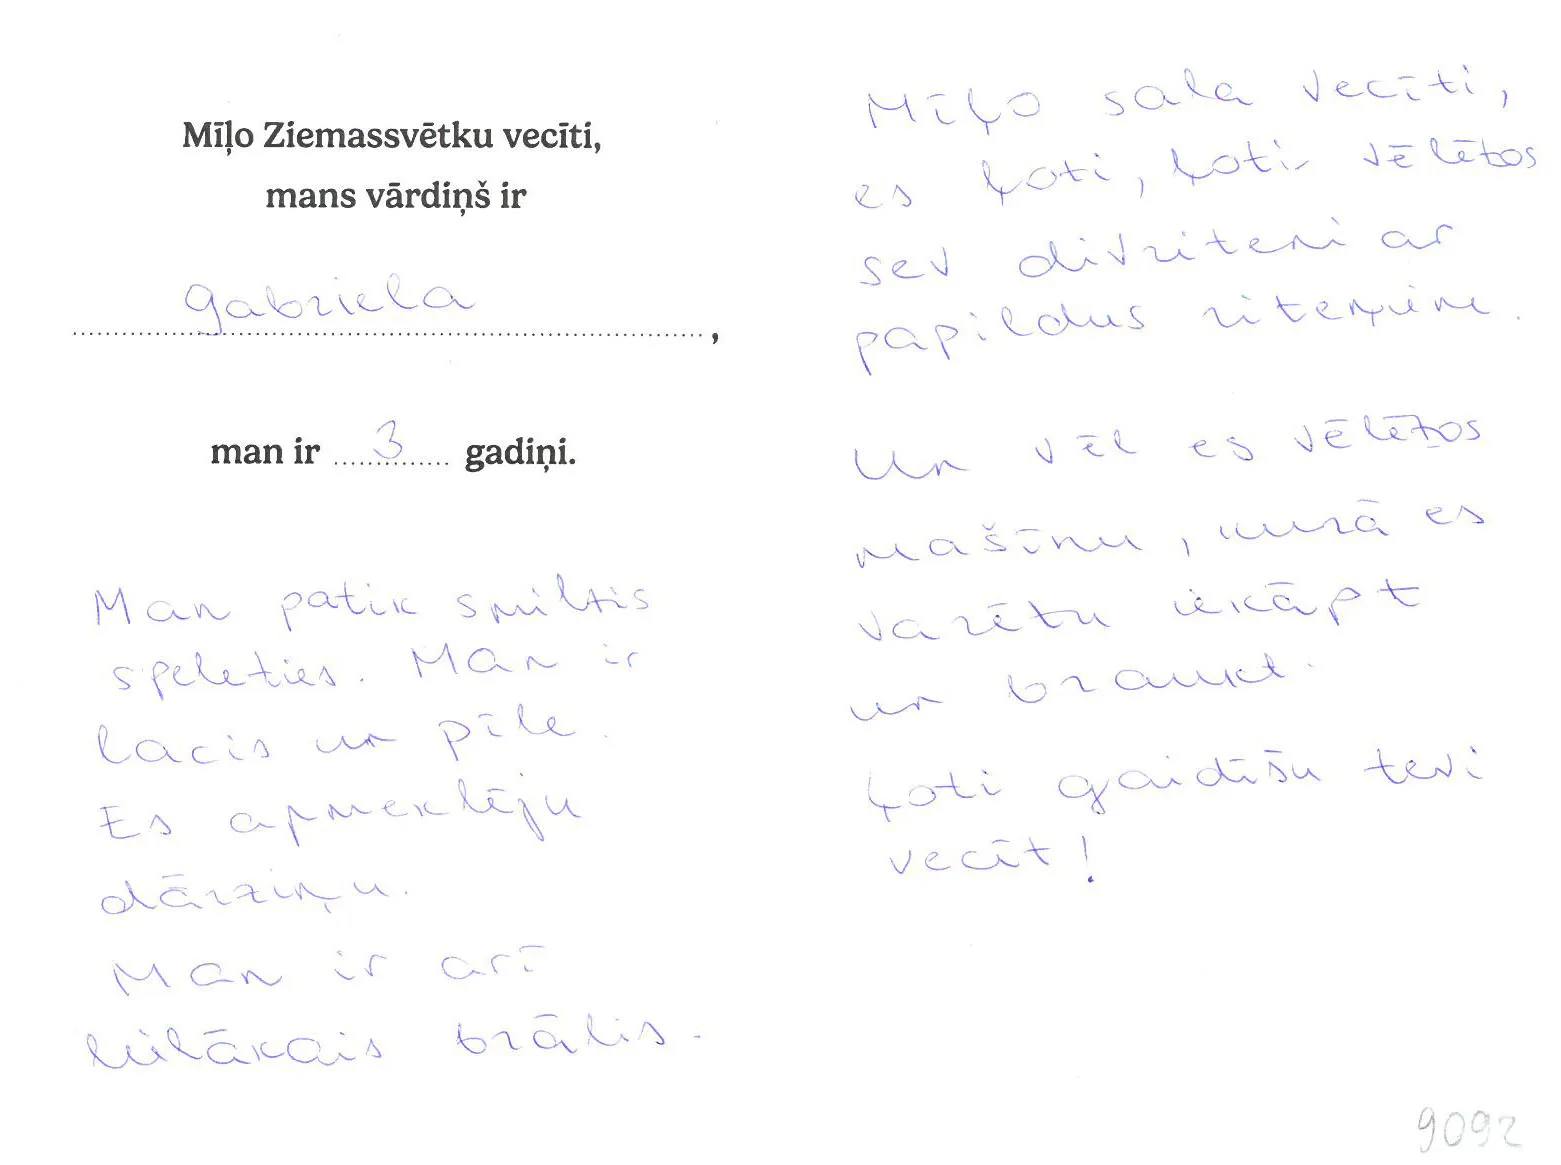 Mīļo Ziemassvētku vecīti,
mans vārdiņš ir
Gabriela
,
man ir 3 gadiņi.
Man patik smiltis
speleties. Man ir
lācis un pīle.
Es apmeklēju
dārziņu.
Man ir arī
lielākais brālis.
Mīļo sala vecīti,
es ļoti, ļoti vēlētos
sev divriteni ar
papildus riteņiem.
Un vēl es vēlētos
mašīnu, kurā es
varētu iekāpt
un braukt.
Ļoti gaidīšu tevi
vecīt!
9092